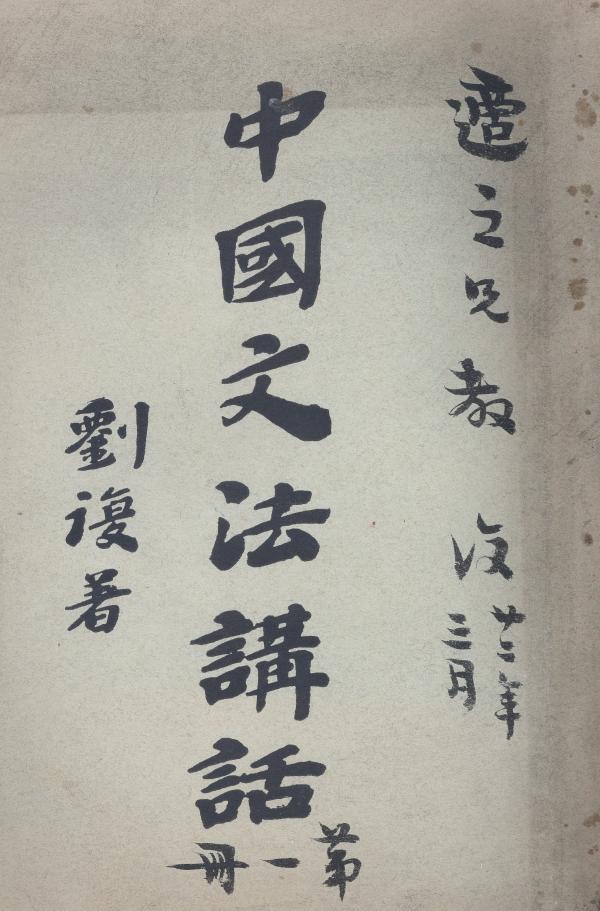 適之兄教 復
廿二年
三月
中國文法講話
第一冊
劉復著